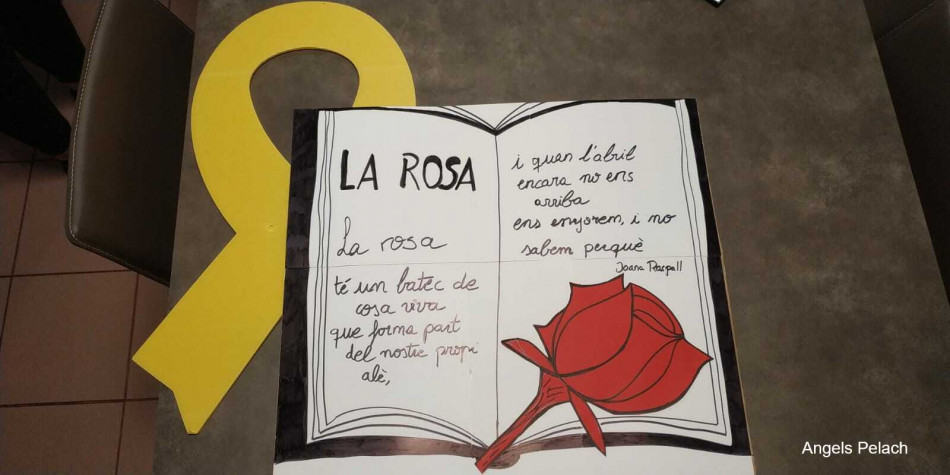 LA ROSA
La rosa
té un batec de
cosa viva
que forma part
del nostre propi
alè,
i quan l'abril
encara no ens
arriba
ens enyorem, i no
sabem perquè
Joana Raspall
Angels Pelach